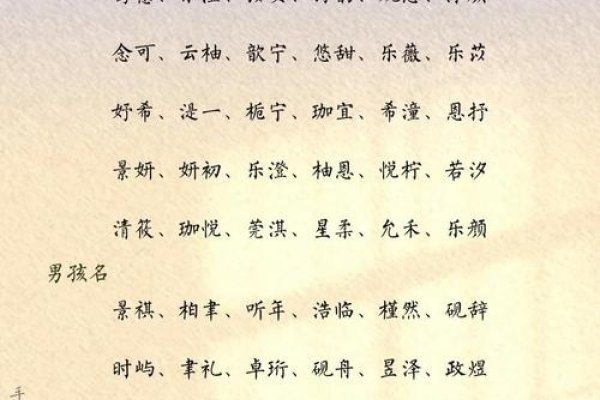 念可、云柚、歆宁、悠甜、乐薇、乐苡
妤希、湜一、栀宁、珈宜、希潼、恩抒
景妍、妍初、乐澄、柚恩、悦柠、若汐
清筱、珈悦、莞淇、星柔、允禾、乐颜
男孩名
景祺、柏聿、听年、浩临、槿然、砚辞
时屿、聿礼、卓珩、砚舟、昱泽、政煜